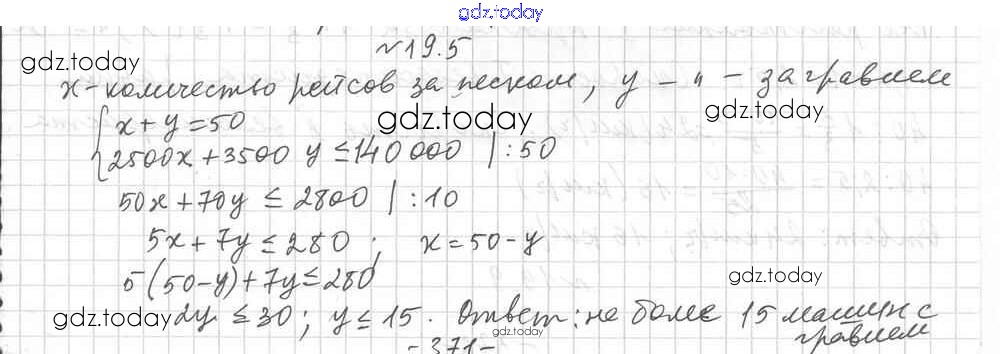 gdz.today
№19.5
gdz.today
x-количество рейсов за песком, y - " - за гравием
gdz.today
{ x+y=50
gdz.today
2500x+3500y ≤ 140 000 | :50
50x+70y ≤ 2800 | :10
5x+7y ≤ 280 ; x=50-y
5(50-y)+7y ≤ 280
gdz.today
gdz.today 2y ≤ 30 ; y ≤ 15. Ответ: не более 15 машин с
gdz.today
гравием
-371-